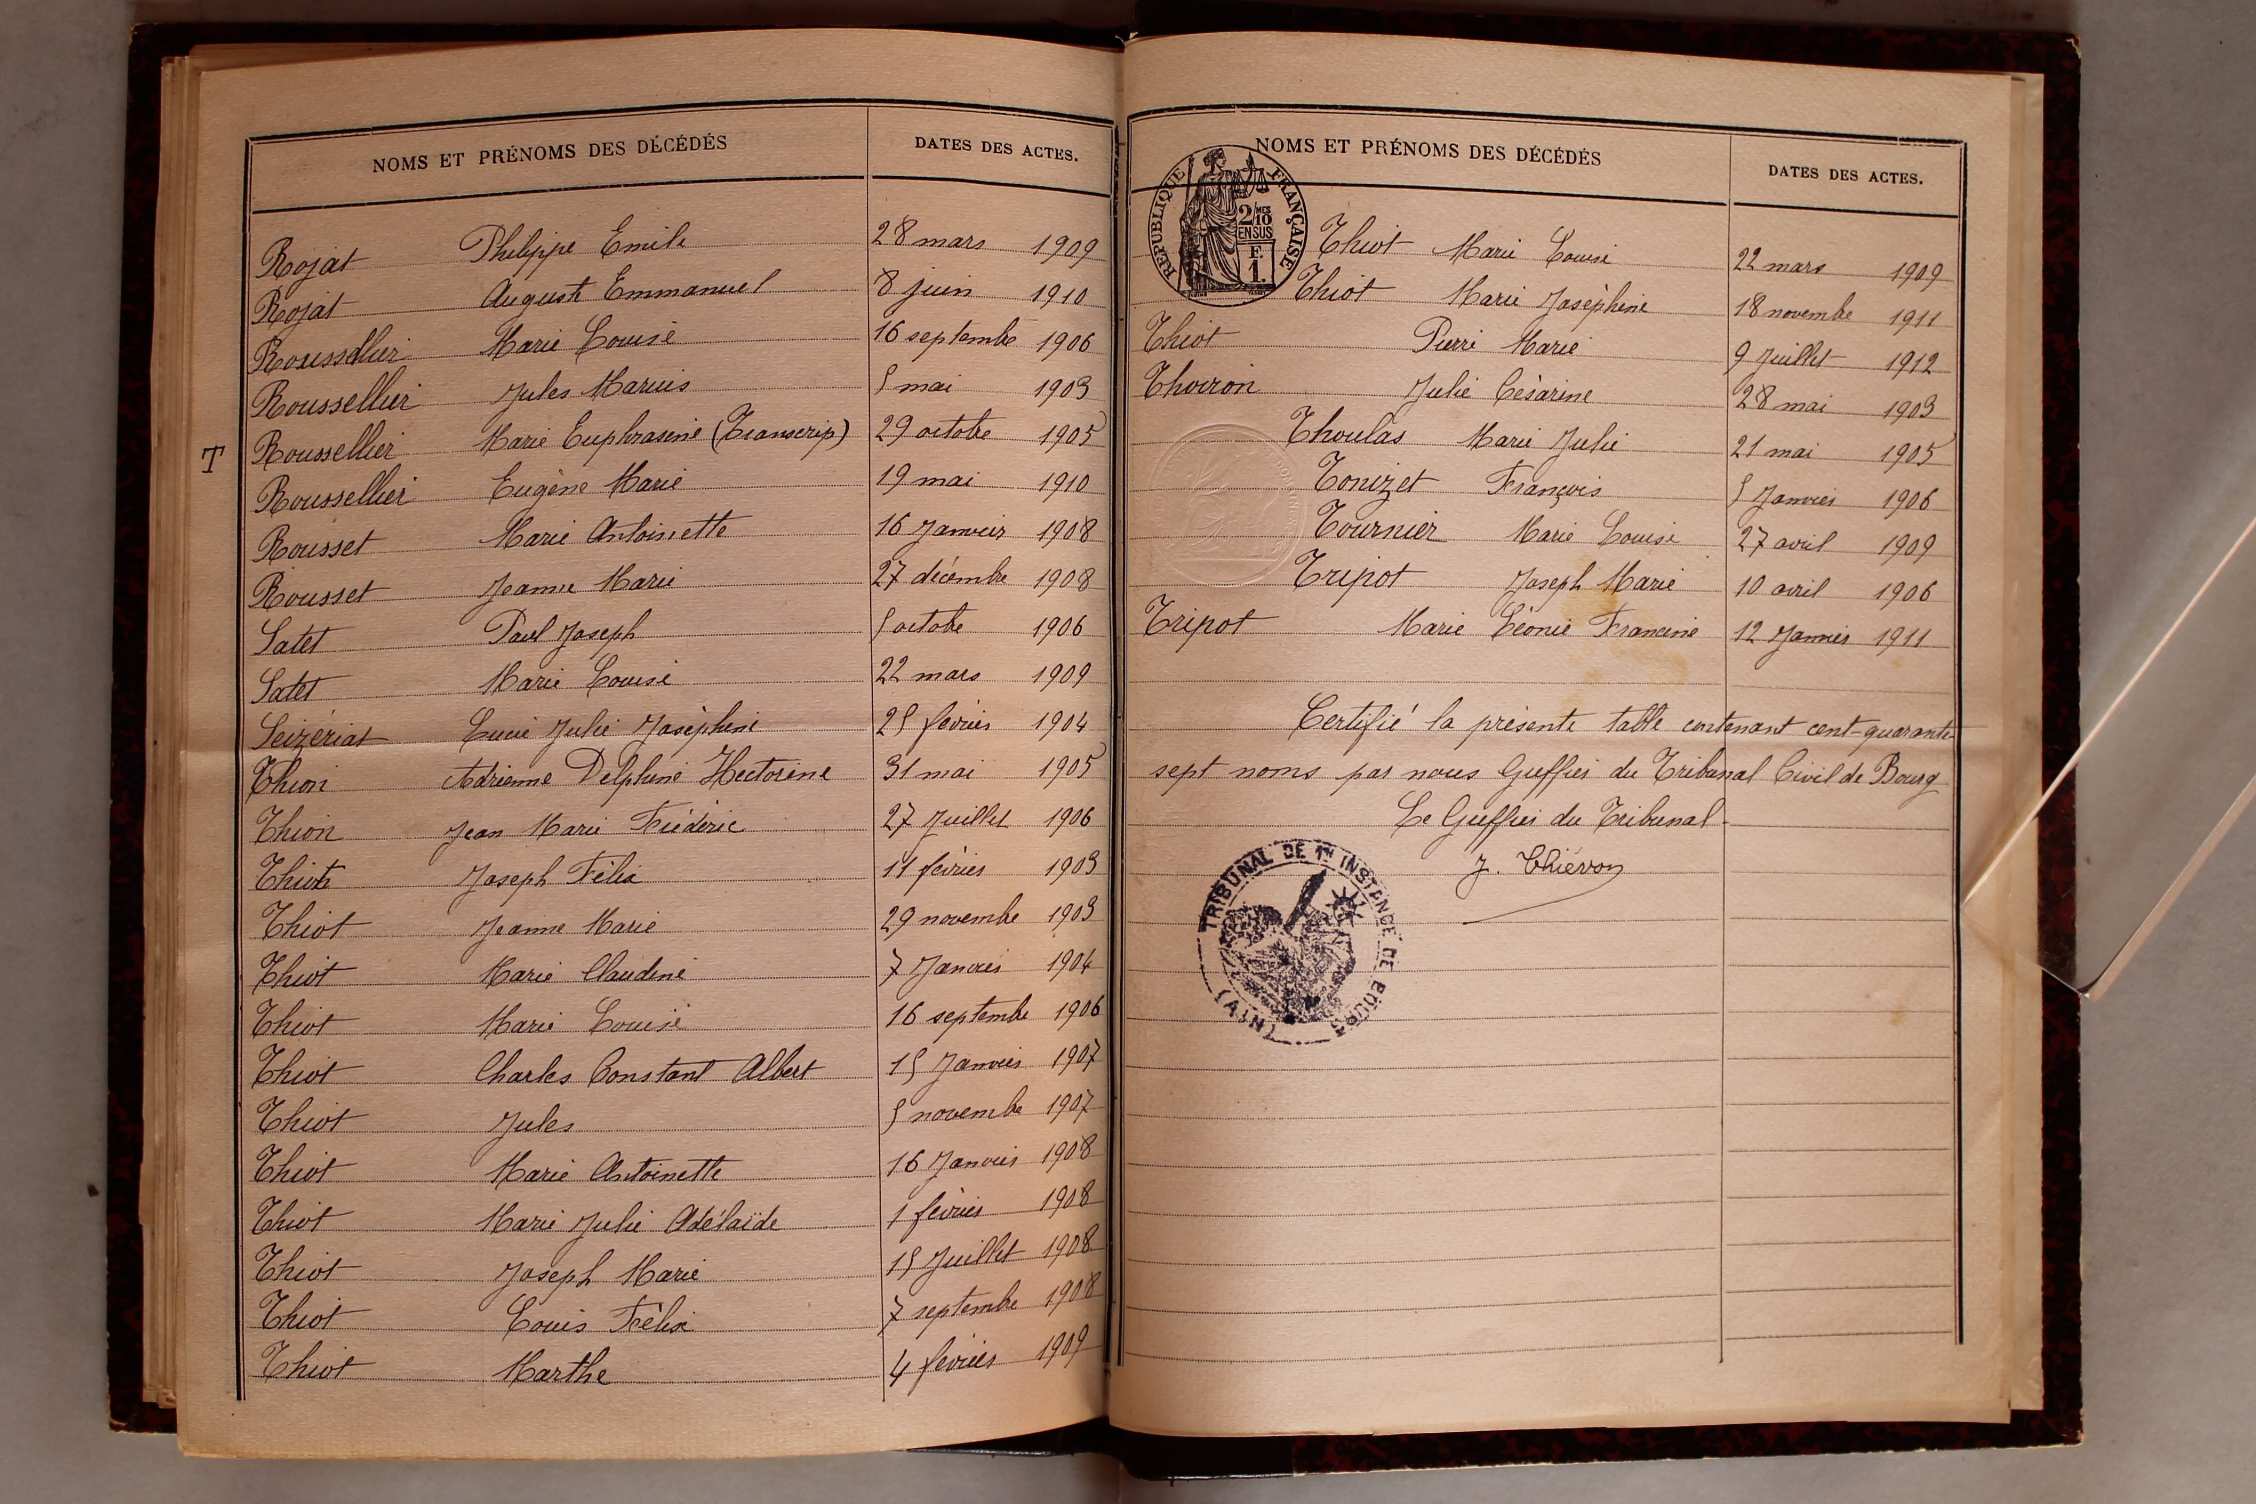 NOMS ET PRÉNOMS DES DÉCÉDÉS DATES DES ACTES.
Rojat Philippe Emile 28 mars 1909
Rojat Auguste Emmanuel 8 juin 1910
Roussellier Marie Louise 16 septembre 1906
Roussellier Jules Marius 5 mai 1903
T Roussellier Marie Euphrasine (Transcrip) 29 octobre 1905
Roussellier Eugène Marie 19 mai 1910
Rousset Marie Antoinette 16 Janvier 1908
Rousset Jeanne Marie 27 décembre 1908
Satet Paul Joseph 5 octobre 1906
Satet Marie Louise 22 mars 1909
Seizériat Lucie Julie Joséphine 25 février 1904
Thion Adrienne Delphine Hectorine 31 mai 1905
Thion Jean Marie Frédéric 27 Juillet 1906
Thiot Joseph Félix 11 février 1903
Thiot Jeanne Marie 29 novembre 1903
Thiot Marie Claudine 7 Janvier 1904
Thiot Marie Louise 16 septembre 1906
Thiot Charles Constant Albert 15 Janvier 1907
Thiot Jules 5 novembre 1907
Thiot Marie Antoinette 16 Janvier 1908
Thiot Marie Julie Adélaïde 1 février 1908
Thiot Joseph Marie 15 Juillet 1908
Thiot Louis Félix 7 septembre 1908
Thiot Marthe 4 février 1909
NOMS ET PRÉNOMS DES DÉCÉDÉS DATES DES ACTES.
RÉPUBLIQUE FRANÇAISE
2/10 MES
EN SUS
F.
1.
Thiot Marie Louise 22 mars 1909
Thiot Marie Joséphine 18 novembre 1911
Thiot Pierre Marie 9 Juillet 1912
Thoiron Julie Césarine 28 mai 1903
Thoulas Marie Julie 21 mai 1905
Tonizet François 5 Janvier 1906
Tournier Marie Louise 27 avril 1909
Tripot Joseph Marie 10 avril 1906
Tripot Marie Léonie Francine 12 Janvier 1911
Certifié la présente table contenant cent-quarante-
sept noms par nous Greffier du Tribunal Civil de Bourg
Le Greffier du Tribunal
J. Thiévon
TRIBUNAL DE 1RE INSTANCE DE BOURG
(AIN)